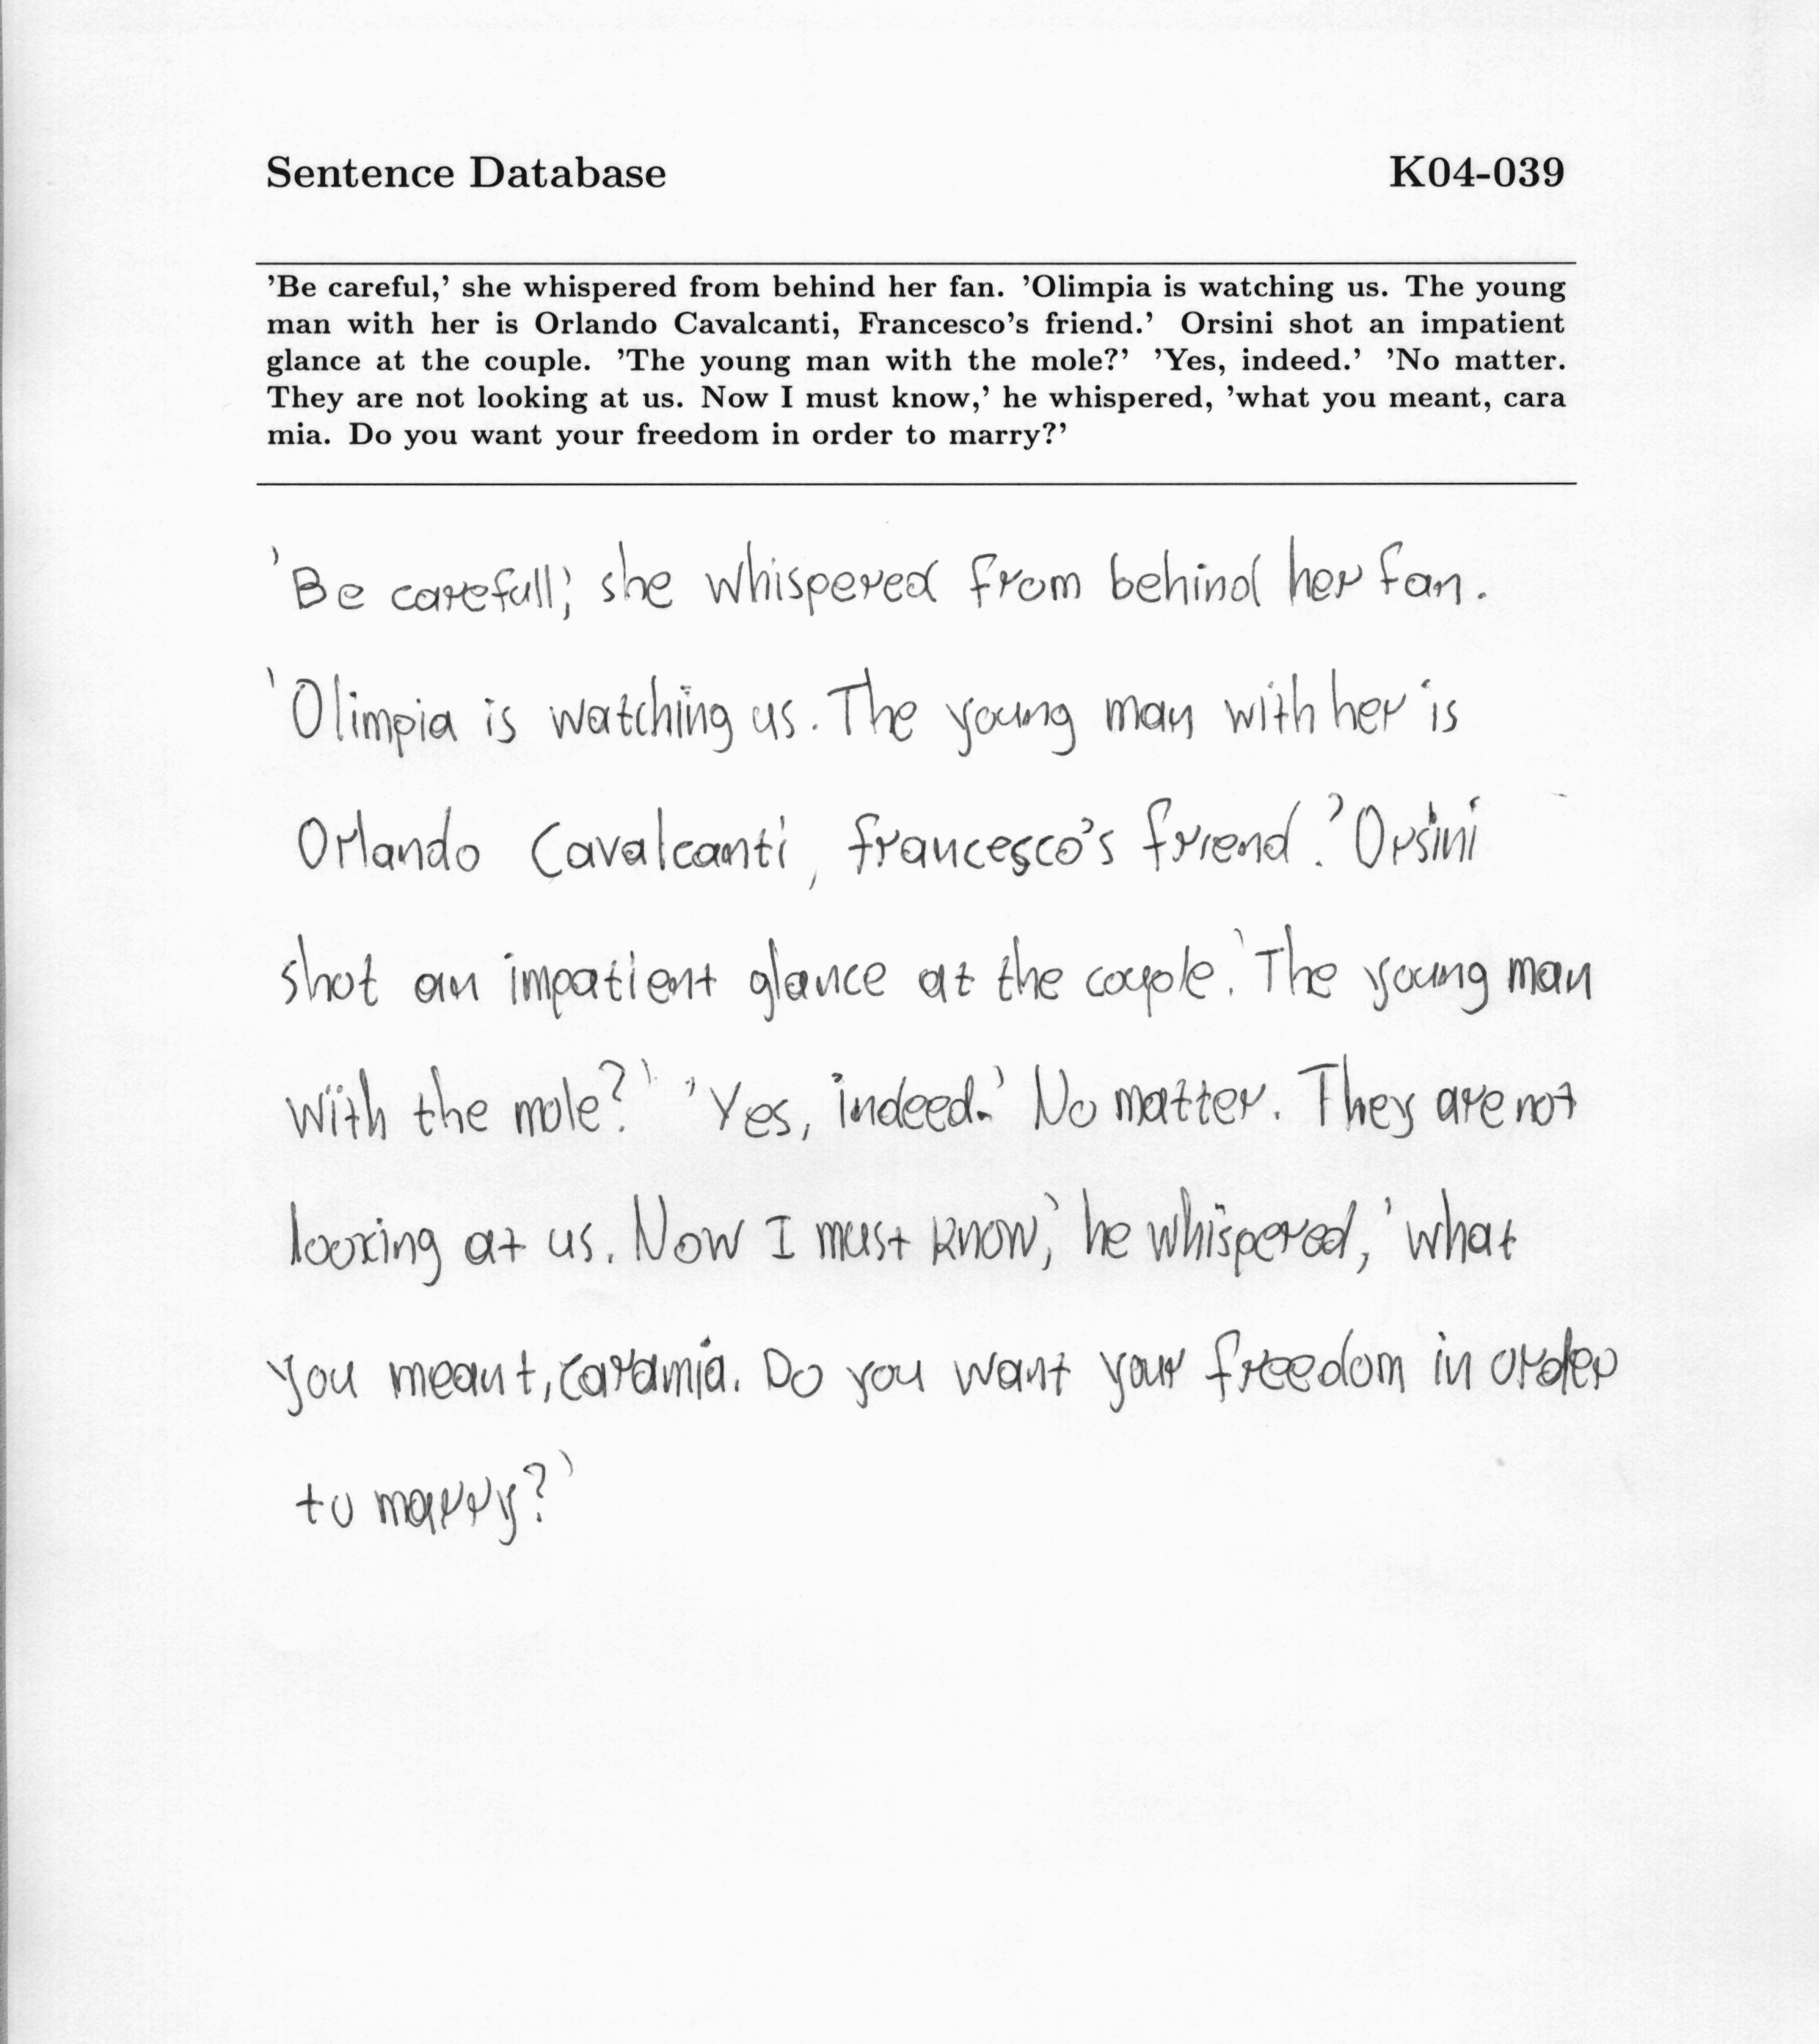 Sentence Database K04-039
'Be careful,' she whispered from behind her fan. 'Olimpia is watching us. The young
man with her is Orlando Cavalcanti, Francesco's friend.' Orsini shot an impatient
glance at the couple. 'The young man with the mole?' 'Yes, indeed.' 'No matter.
They are not looking at us. Now I must know,' he whispered, 'what you meant, cara
mia. Do you want your freedom in order to marry?'
'Be carefull,' she whispered from behind her fan.
'Olimpia is watching us. The young man with her is
Orlando Cavalcanti, francesco's friend.' Orsini
shot an impatient glance at the couple. 'The young man
with the mole?' 'Yes, indeed.' No matter. They are not
looking at us. Now I must know,' he whispered, 'what
you meant, cara mia. Do you want your freedom in order
to marry?'